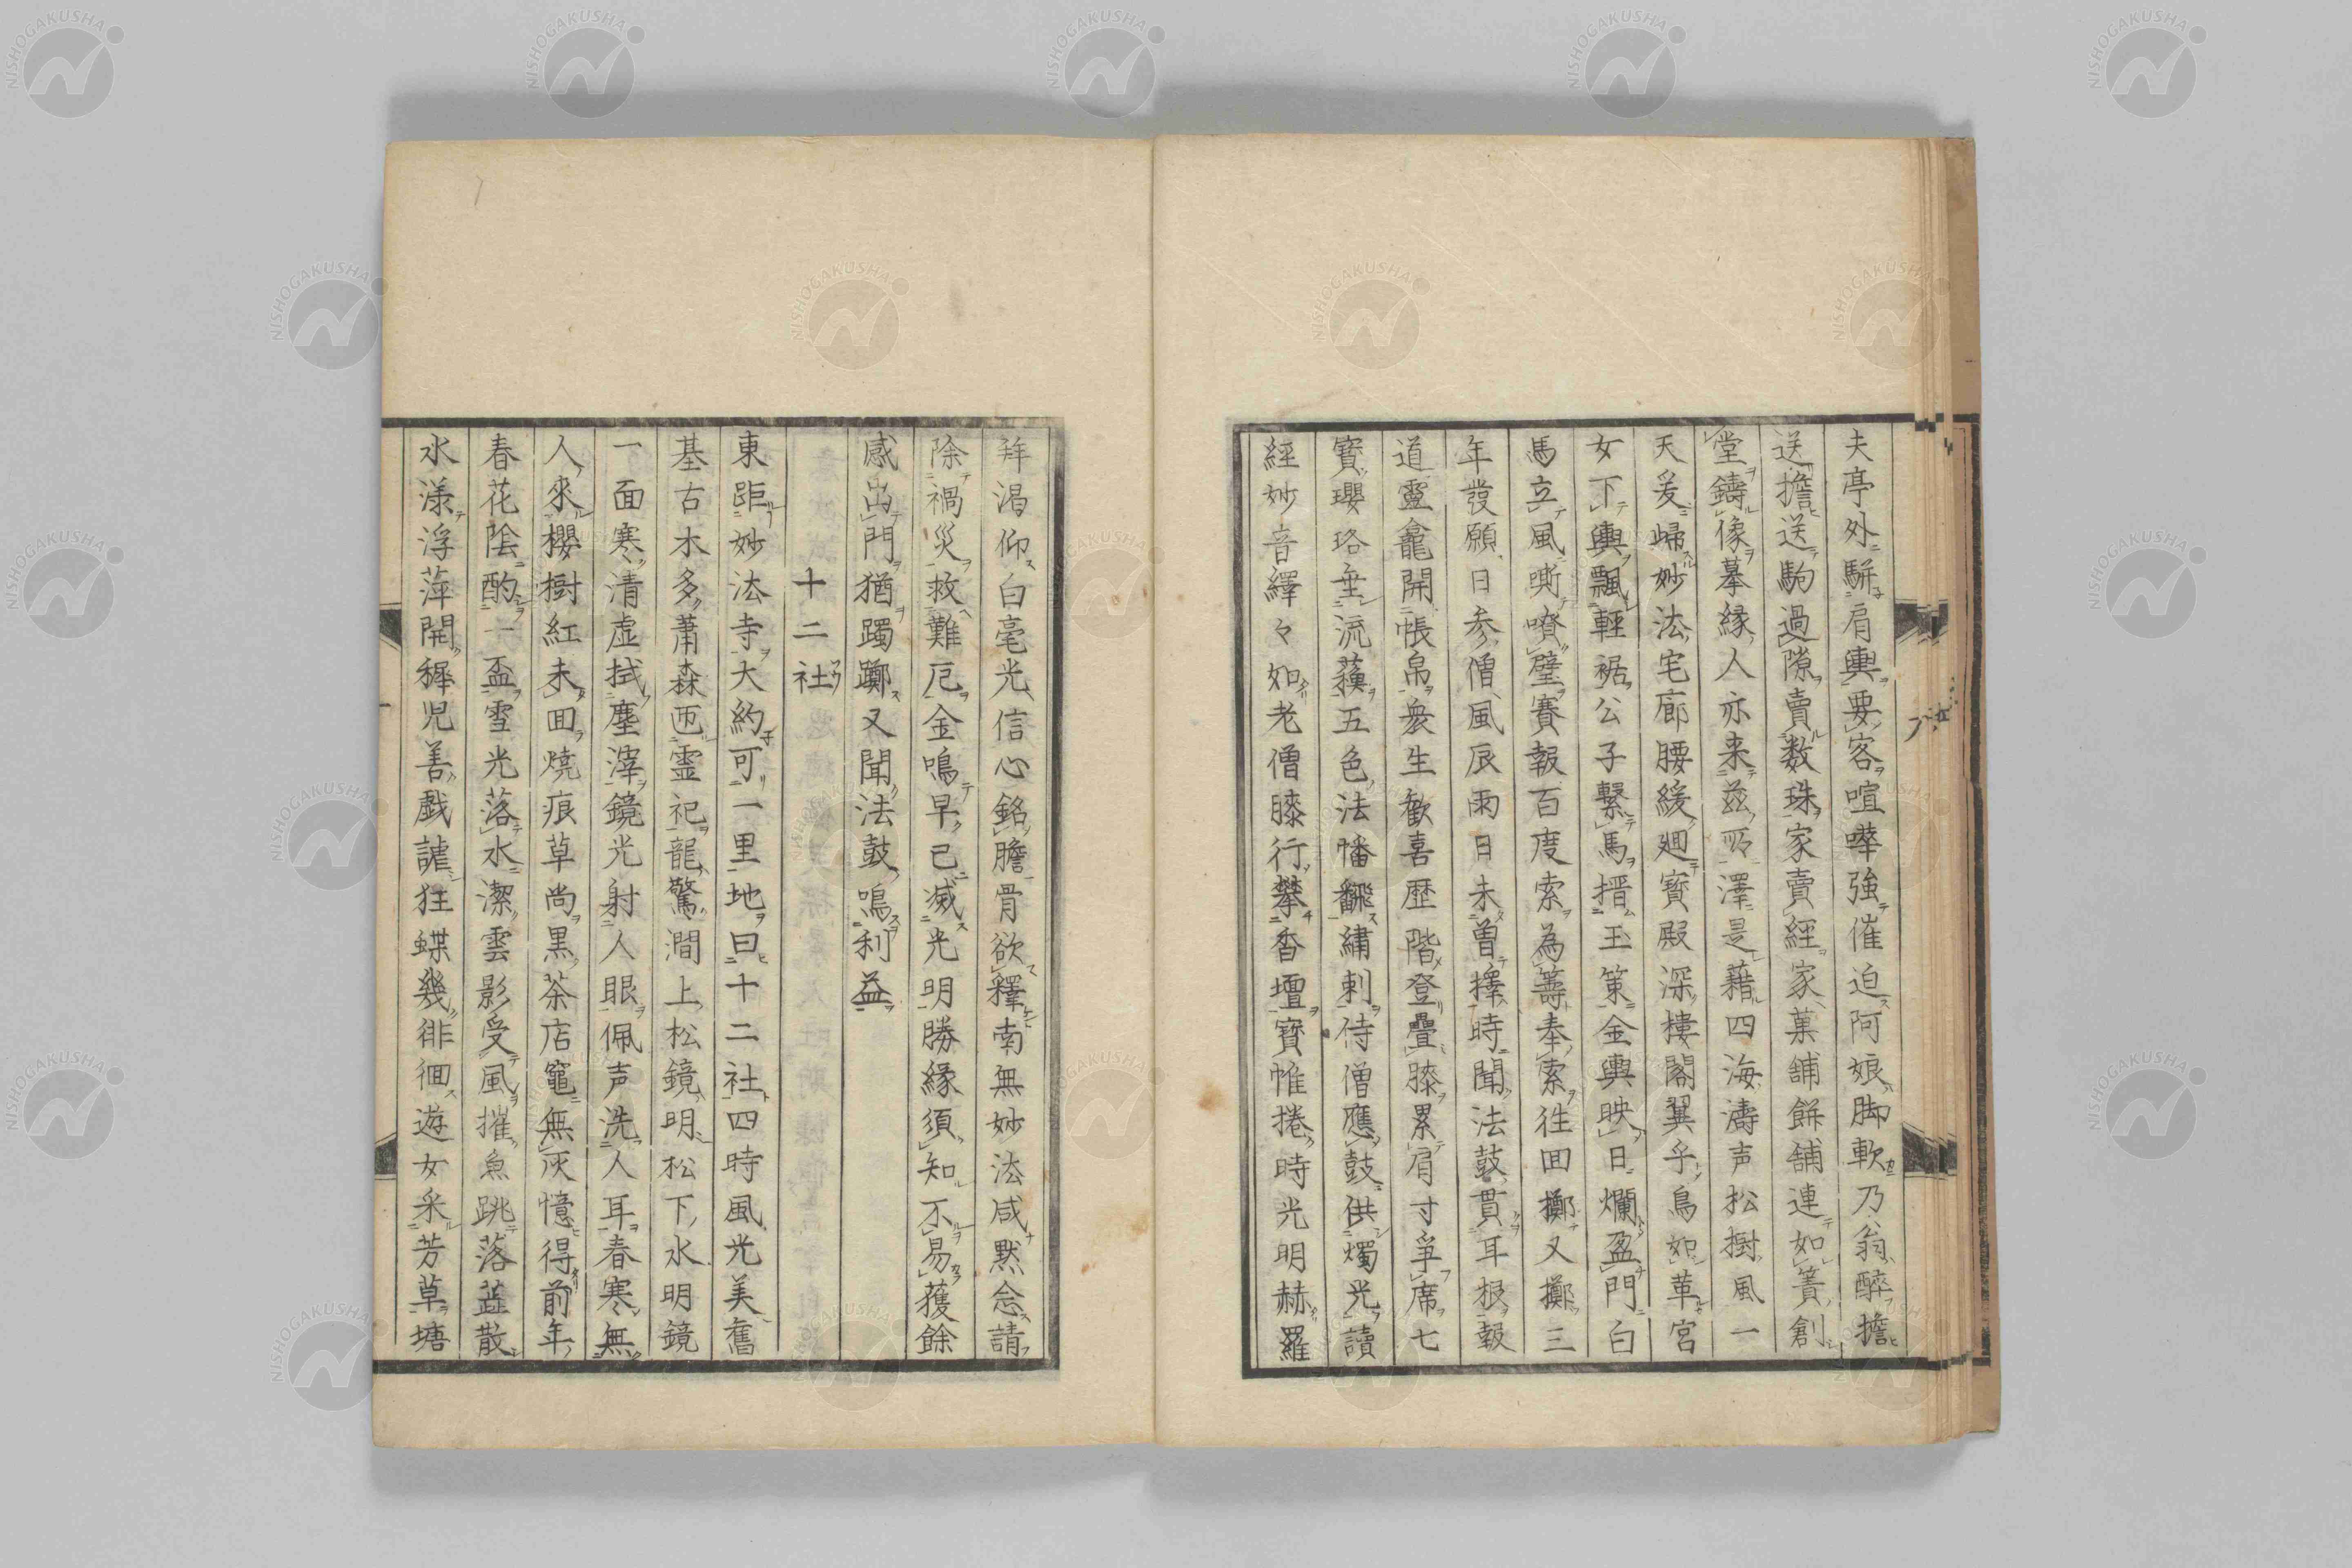 夫亭外駢肩輿要客喧嘩強催迫阿娘脚軟乃翁醉擔
送擔送駒過隙賣数珠家賣經家菓舗餅舗連如簀創
堂鑄像摹縁人亦来茲所澤是藉四海濤声松樹風一
天爰歸妙法宅廊腰緩廻寳殿深樓閣翼乎鳥如革宮
女下輿飄輕裾公子繋馬搢玉策金輿映日爛盈門白
馬立風嘶噴璧賽報百度索為籌奉索往回擲又擲三
年發願日参僧風辰雨日未曽擇時聞法鼓貫耳根報
道靈龕開帳帛衆生歓喜歴階登疊膝累肩寸爭席七
寳瓔珞垂流蘓五色法幡飜繍刺侍僧應鼓供燭光讀
經妙音繹々如老僧膝行攀香壇寳帷捲時光明赫羅
拜渇仰白毫光信心銘膽骨欲釋南無妙法咸黙念請
除禍災救難厄金鳴早已滅光明勝縁須知不易獲餘
感出門猶躅躑又聞法鼓鳴利益
十二社
東距妙法寺大約可一里地曰十二社四時風光美舊
基古木多蕭森匝霊祀龍驚澗上松鏡明松下水明鏡
一面寒清虚拭塵滓鏡光射人眼佩声洗人耳春寒無
人來櫻樹紅未回燒痕草尚黒茶店竈無灰憶得前年
春花陰酌一盃雪光落水潔雲影受風摧魚跳落蕋散
水漾浮萍開穉児善戯謔狂蝶幾徘徊遊女采芳草塘
NISHOGAKUSHA